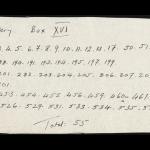 ery Box XVI
3, 4, 5. 6. 7. 8. 9. 10. 11. 12. 13. 17. 50. 51.
88. 190. 191. 192. 194. 195. 197. 199.
201. 202. 203. 204. 205. 206. 207. 20
453. 454. 455. 456. 459. 460. 467.
526. 529. 531. 533. 534. 535. 5
Total: 55